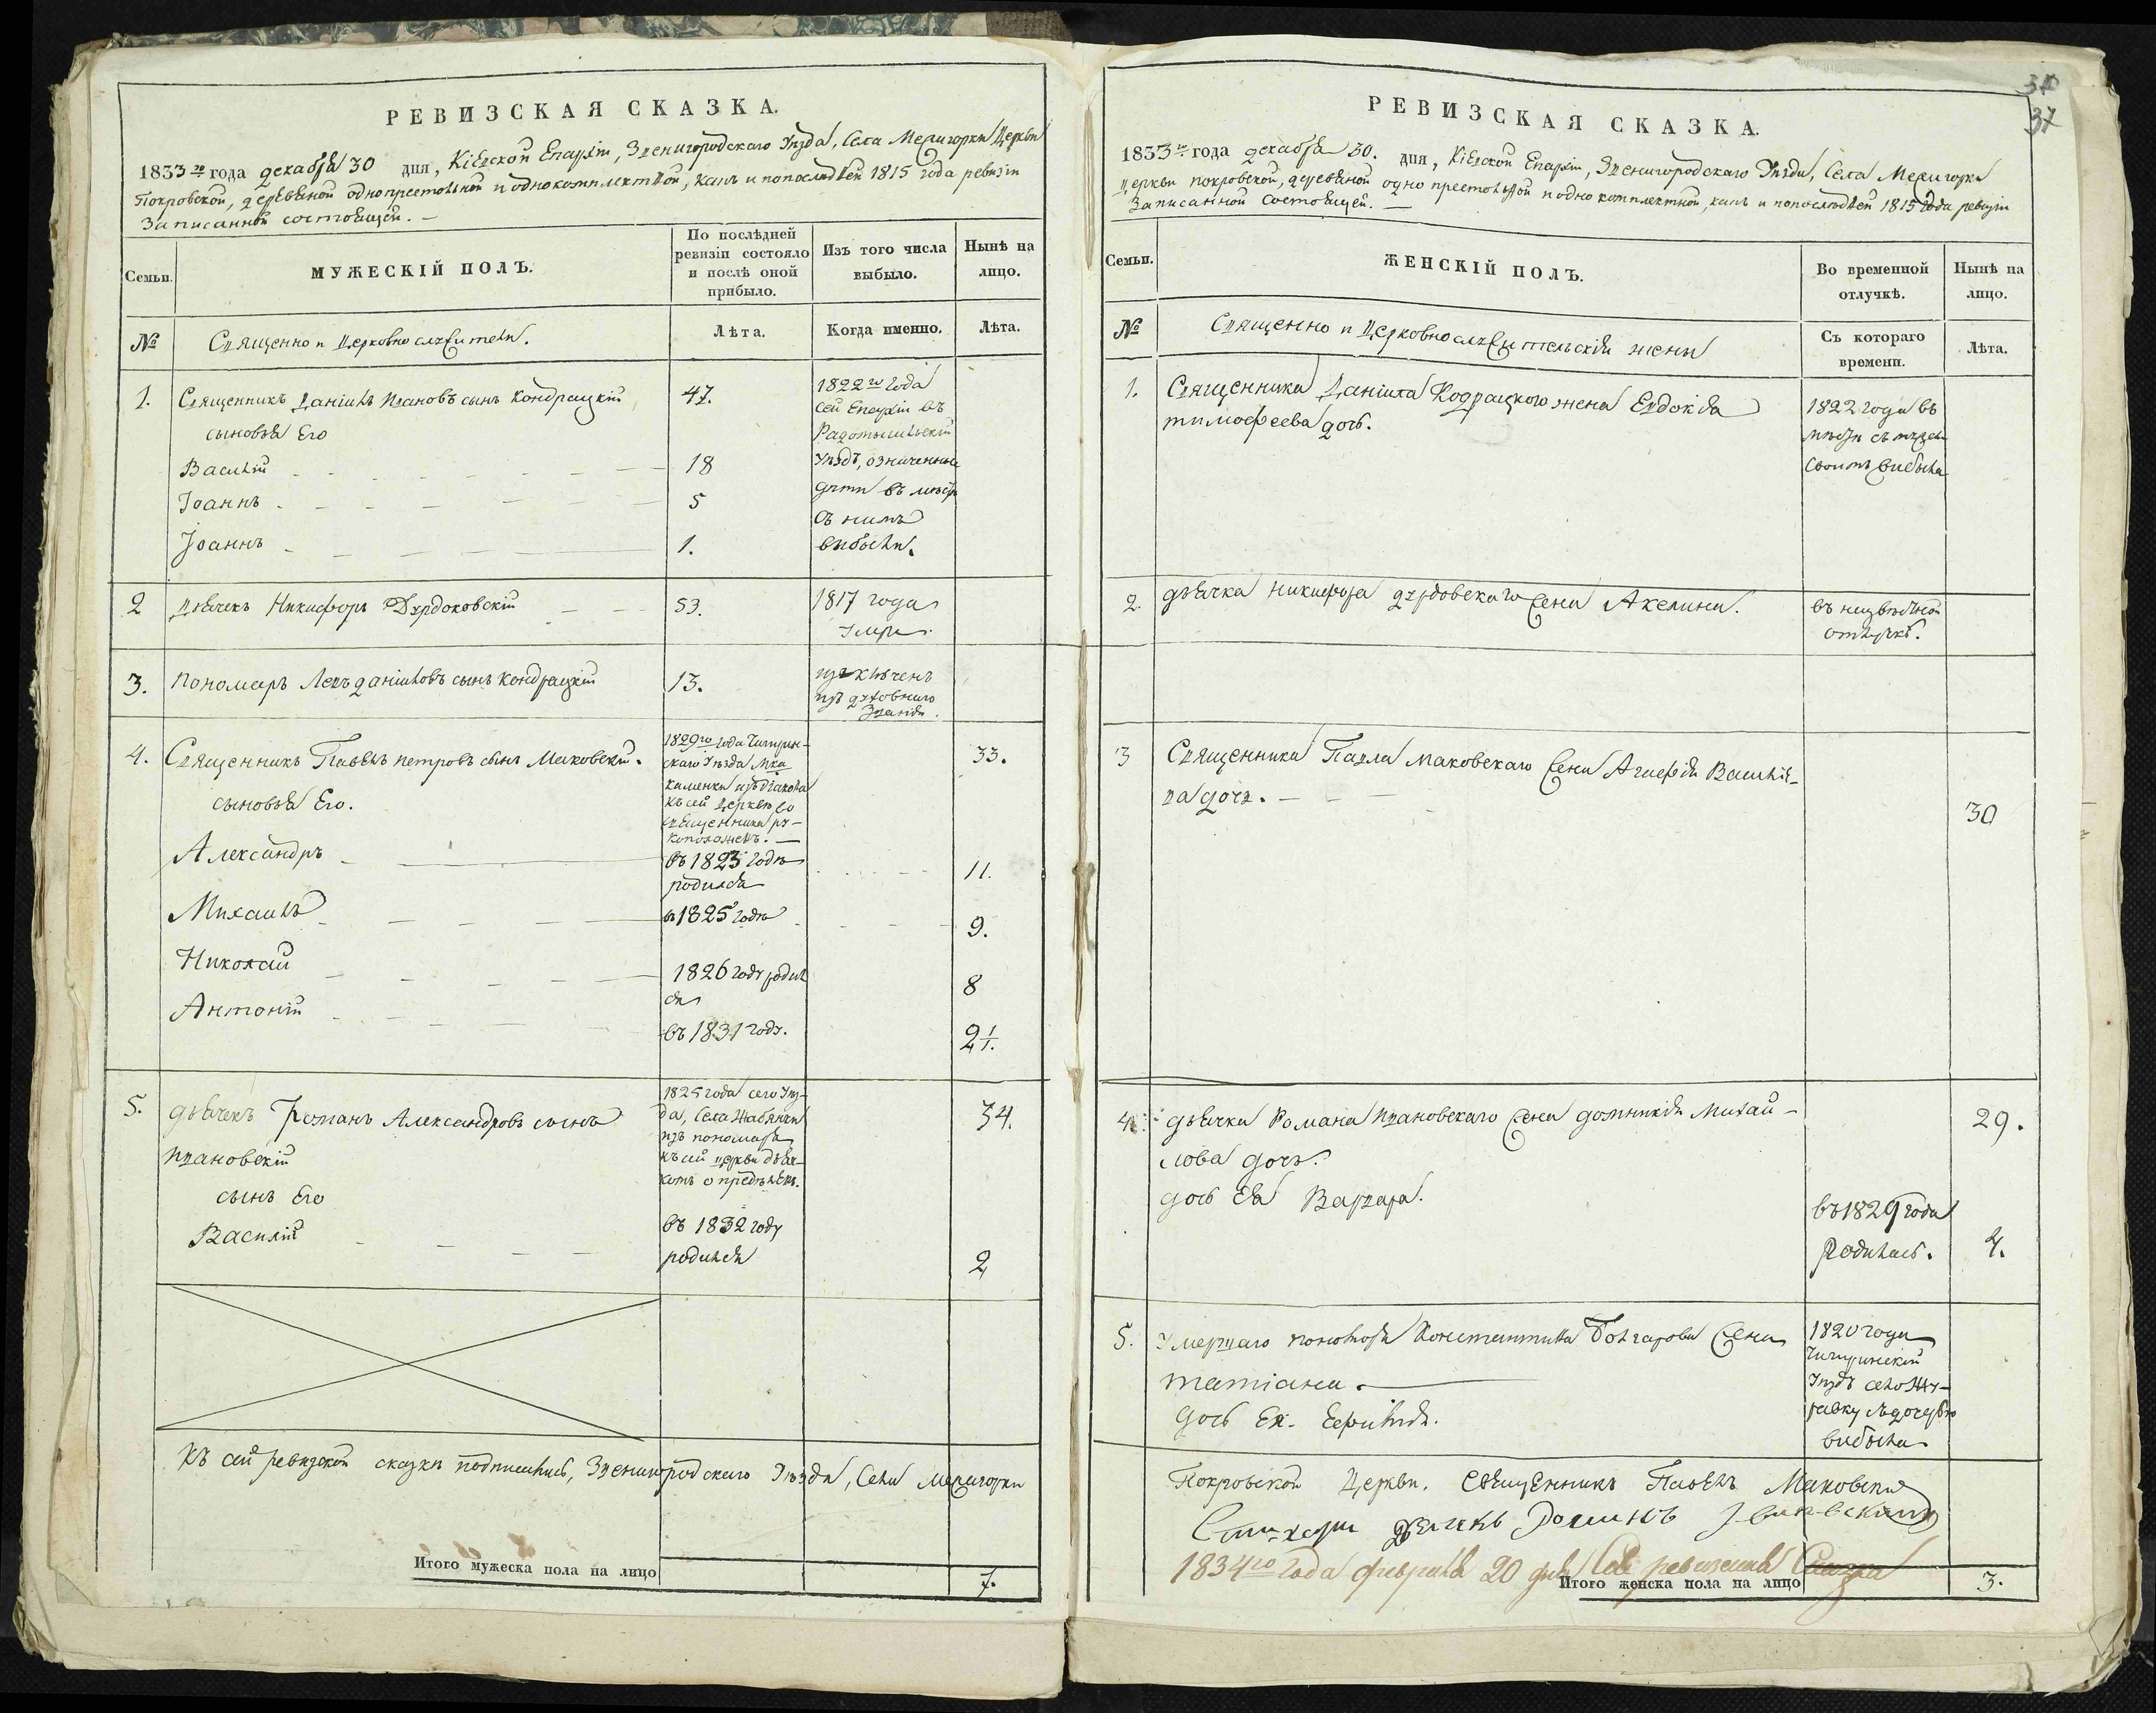 РЕВИЗСКАЯ СКАЗКА.
1833го года декабря 30 дня, Кіевской Епархіи, Звенигородскаго Уезда, Села Мелигорки Церкви
Покровской, деревяной однопрестольной и однокомплектной, какъ и попоследней 1815 года ревизіи
Записанной состоящей. —
Семьи.
МУЖЕСКІЙ ПОЛЪ.
По послѣдней
ревизіи состояло
и послѣ оной
прибыло.
Изъ того числа
выбыло.
Нынѣ на
лицо.
№
Священно и Церковно служители.
Лѣта.
Когда именно.
Лѣта.
1.
Священникъ Даніилъ Ивановъ сынъ Кондрацкій
47.
1822го года
сей Епархіи въ
Радомышльскій
Уездъ, означенные
дети въ месте
съ нимъ
выбыли.
сыновья Его
Василій
18
Іоаннъ
5
Іоаннъ
1.
2
дьячекъ Никифоръ Дурдоковскій
53.
1817 года
умре.
3.
Пономаръ Левъ даніиловъ сынъ Кондрацкій
13.
изключенъ
изъ духовнаго
Званія.
4.
Священникъ Павелъ петровъ сынъ Маковскій.
1829го года Чигирин-
скаго Уезда Мка
Каменки изъ діакона
къ сей Церкве во
священника ру-
коположенъ. —
33.
сыновья Его.
Александръ
въ 1823 годе
родился
11.
Михаилъ
въ 1825 годе
9.
Николай
1826 году родил
ся
8
Антоній
въ 1831 году.
2 1/1.
5.
дьячекъ Романъ Александровъ сынъ
Ивановскій
1825 года сего Уез-
да, Села Жабянки
изъ пономаря
къ сей церкви дьяч-
комъ определенъ.
34.
сынъ Его
Василій
въ 1832 году
родился
2
Къ сей ревизской сказки подписались, Звенигородскаго Уезда, Села Мелигорки
Итого мужеска пола на лицо
7.
37
РЕВИЗСКАЯ СКАЗКА.
1833го года декабря 30. дня, Кіевской Епархіи, Звенигородскаго Уезда, Села Мелигорки
Церкви покровской, деревяной одно престольной и одно комплектной, какъ и попоследней 1815 года ревизіи
Записанной состоящей. —
Семьи.
ЖЕНСКІЙ ПОЛЪ.
Во временной
отлучкѣ.
Нынѣ на
лицо.
№
Священно и Церковнослужительскія жены
Съ котораго
времени.
Лѣта.
1.
Священника Даніила Кодрацкого жена Евдокія
тимофеева дочь.
1822 года въ
месте съ мужем
своимъ выбыла
2.
дьячка никифора дурдовскаго жена Акелина.
въ неизвестной
отлучке.
3
Священника Павла маковскаго жена Агафія Василіе-
ва дочъ.
30
4.
дьячка Романа Ивановскаго жена домникія Михай-
лова дочъ.
29.
дочь Ея Варвара.
въ 1829 года
родилась.
4.
5.
Умершаго пономаря Константина Болгарова жена
татіана.
дочь Ея
1820 года
Чигиринскій
Уездъ село Жу-
равку съ дочерью
выбыла
Покровской Церкви. Священникъ Павелъ Маковскій
дьячекъ Романъ Ивановскій
1834го года февраля 20 дня сія ревизская Сказка
Итого женска пола на лицо
3.